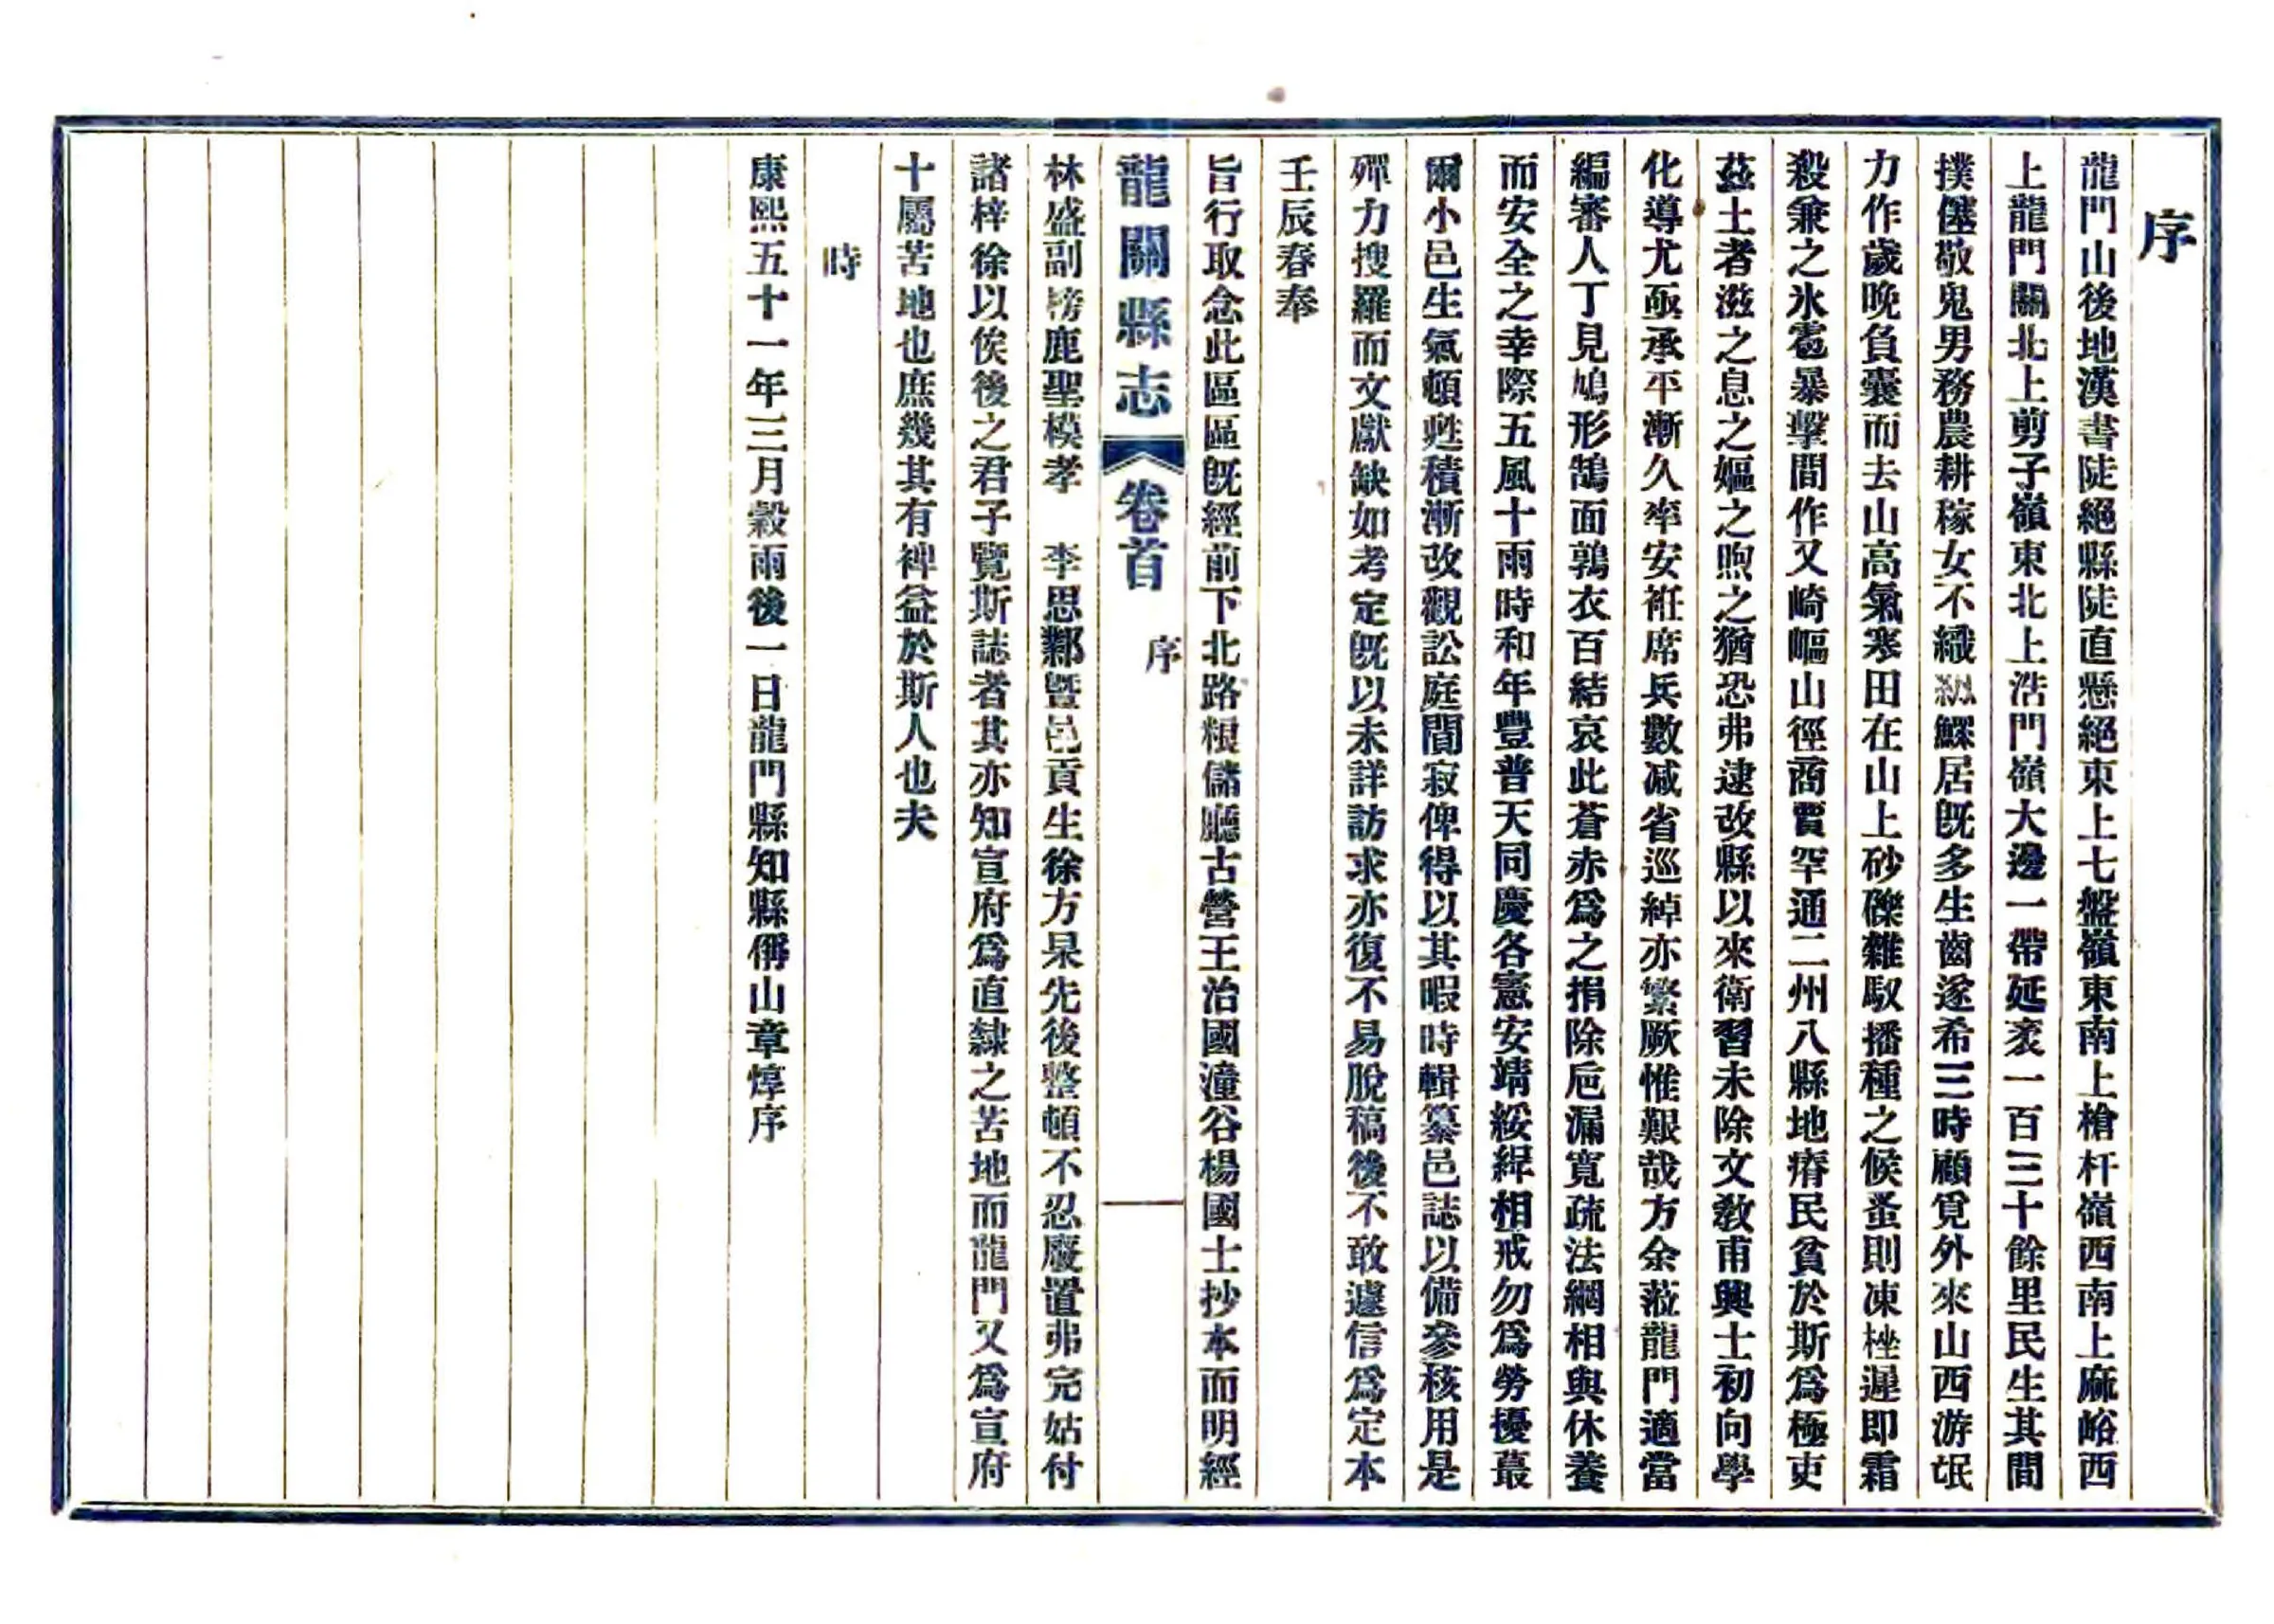 序
龍門山後地漢書陡絕縣陡直懸絕東上七盤嶺東南上槍杆嶺西南上麻峪西
上龍門關北上剪子嶺東北上浩門嶺大邊一帶延袤一百三十餘里民生其間
撲僿敬鬼男務農耕稼女不織紉鰥居旣多生齒遂希三時顧覓外來山西游氓
力作歲晚負囊而去山高氣寒田在山上砂礫雜馭播種之候蚤則凍挫遲即霜
殺兼之氷雹暴擊間作又崎嶇山徑商賈罕通二州八縣地瘠民貧於斯爲極吏
茲土者滋之息之嫗之煦之猶恐弗逮改縣以來衛習未除文敎甫興士初向學
化導尤亟承平漸久率安袵席兵數减省巡綽亦繁厥惟艱哉方余蒞龍門適當
編審人丁見鳩形鵠面鶉衣百結哀此蒼赤爲之捐除巵漏寬疏法網相與休養
而安全之幸際五風十雨時和年豐普天同慶各憲安靖綏緝相戒勿爲勞擾蕞
爾小邑生氣頓甦積漸改觀訟庭閴寂俾得以其暇時輯纂邑誌以備參核用是
殫力搜羅而文獻缺如考定旣以未詳訪求亦復不易脫稿後不敢遽信爲定本
壬辰春奉
旨行取念此區區旣經前下北路糧儲廳古營王治國潼谷楊國士抄本而明經
龍關縣志 卷首 序 一
林盛副榜鹿聖模孝　李思鄴暨邑貢生徐方杲先後整頓不忍廢置弗完姑付
諸梓徐以俟後之君子覽斯誌者其亦知宣府爲直隸之苦地而龍門又爲宣府
十屬苦地也庶幾其有裨益於斯人也夫
時
康熙五十一年三月穀雨後一日龍門縣知縣偁山章焞序